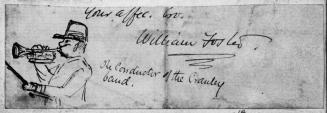 Your affec. Bro.
William Foster.
The Conductor of the Cranley
band.